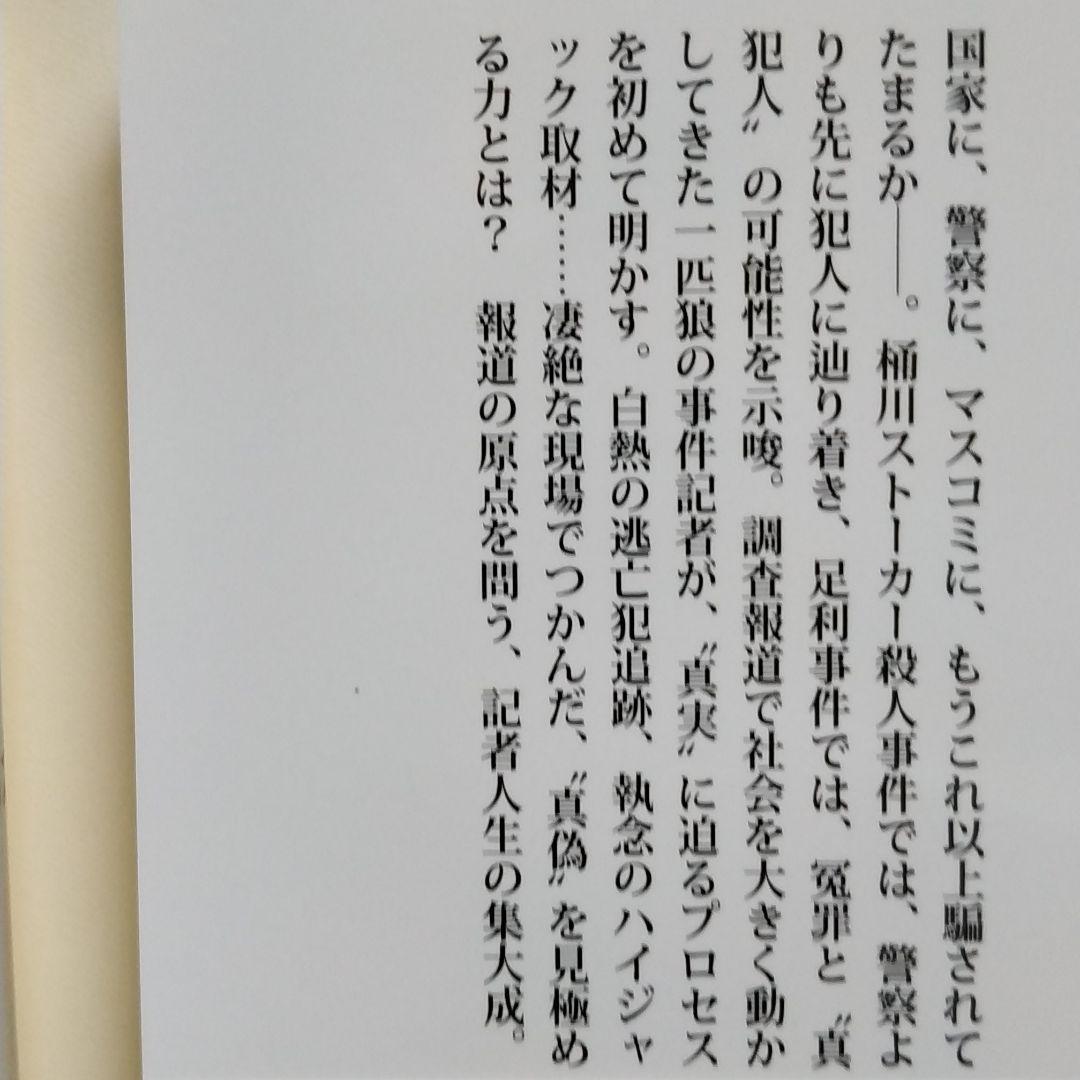 国家に、警察に、マスコミに、もうこれ以上騙されて
たまるか――。桶川ストーカー殺人事件では、警察よ
りも先に犯人に辿り着き、足利事件では、冤罪と〝真
犯人〟の可能性を示唆。調査報道で社会を大きく動か
してきた一匹狼の事件記者が、〝真実〟に迫るプロセス
を初めて明かす。白熱の逃亡犯追跡、執念のハイジャ
ック取材……凄絶な現場でつかんだ、〝真偽〟を見極め
る力とは？　報道の原点を問う、記者人生の集大成。